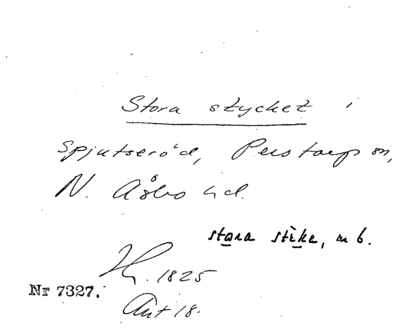 Stora stycket i
Spjutseröd, Perstorp sn,
N. Åsbo hd.
stora stike, m b.
1825
Nr 7327.
Akt 18.